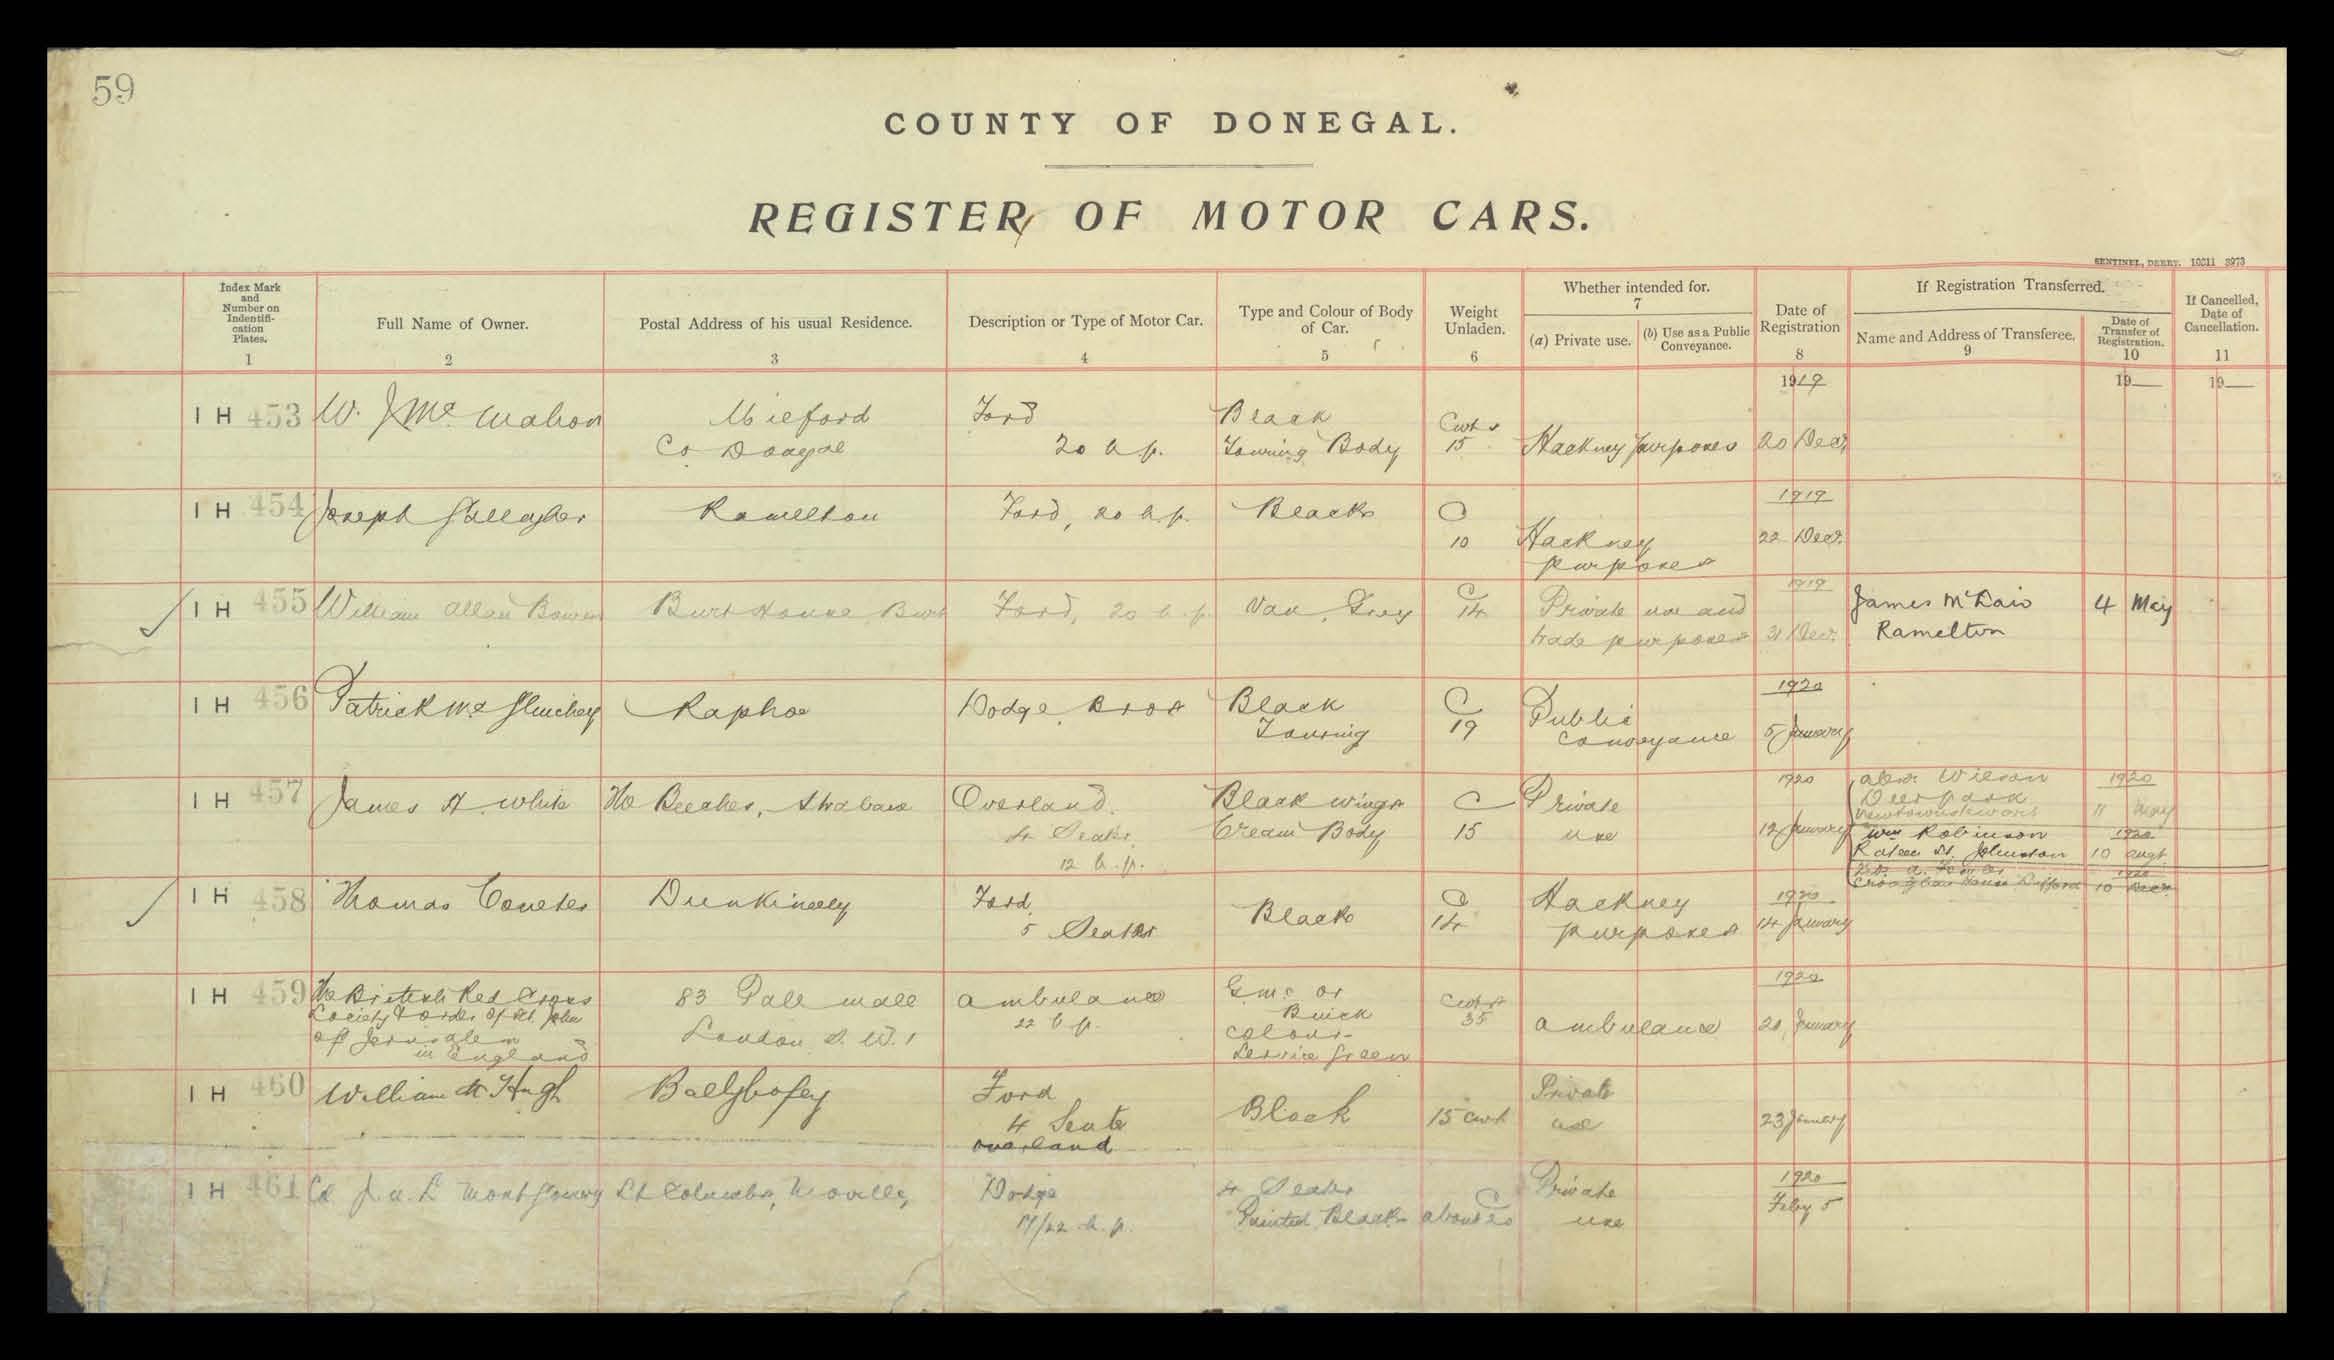 59
COUNTY OF DONEGAL.
REGISTER OF MOTOR CARS.
SENTINEL, DERRY. 10311 3973
Index Mark and Number on Indentifi-cation Plates.
1
Full Name of Owner.
2
Postal Address of his usual Residence.
3
Description or Type of Motor Car.
4
Type and Colour of Body of Car.
5
Weight Unladen.
6
Whether intended for.
7
(a) Private use.
(b) Use as a Public Conveyance.
Date of Registration
8
If Registration Transferred.
Name and Address of Transferee.
9
Date of Transfer of Registration.
10
If Cancelled, Date of Cancellation.
11
1919
19
19
IH 453 W. J Mc Mahon Milford Ford Black Cwts
Co Donegal 20 h.p. Touring Body 15 Hackney purposes 20 Decr
1919
IH 454 Joseph Gallagher Ramelton Ford, 20 h.p. Black C
10 Hackney 22 Decr.
purposes
1919
IH 455 William Allan Bowen Burt House, Burt Ford, 20 h.p. Van, Grey C 14 Private use and James McDaid 4 May
trade purposes 31 Decr. Ramelton
1920
IH 456 Patrick Mc Glinchey Raphoe Dodge Bros Black C Public
Touring 19 Conveyance 5 January
1920 Alexr. Wilson 1920
IH 457 James A. White The Beeches, Strabane Overland. Black wings C Private Deerpark
Newtownstewart 11 May
4 Seats. Cream Body 15 use 12 January Wm Robinson 1920
12 h.p. St. Johnston 10 Augt
1920
Croaghan House Lifford 10
IH 458 Thomas Coulter Dunkineely Ford, Black C Hackney 1920
5 Seater 14 purposes 14 January
1920
IH 459 The British Red Cross 83 Pall Mall Ambulance G.M.C or Cwts
Society & Order of St. John 22 h.p. Buick 35
of Jerusalem London S.W.1 Colour Ambulance 20 January
in England Service Green
IH 460 William McHugh Ballybofey Ford Private
4 Seats Black 15 cwt use 23 January
overland
1920
IH 461 Col J. A. L Montgomery St Columbs, Moville, Dodge 4 Seats C Private
17/22 h.p. Painted Black about 20 use Feby 5